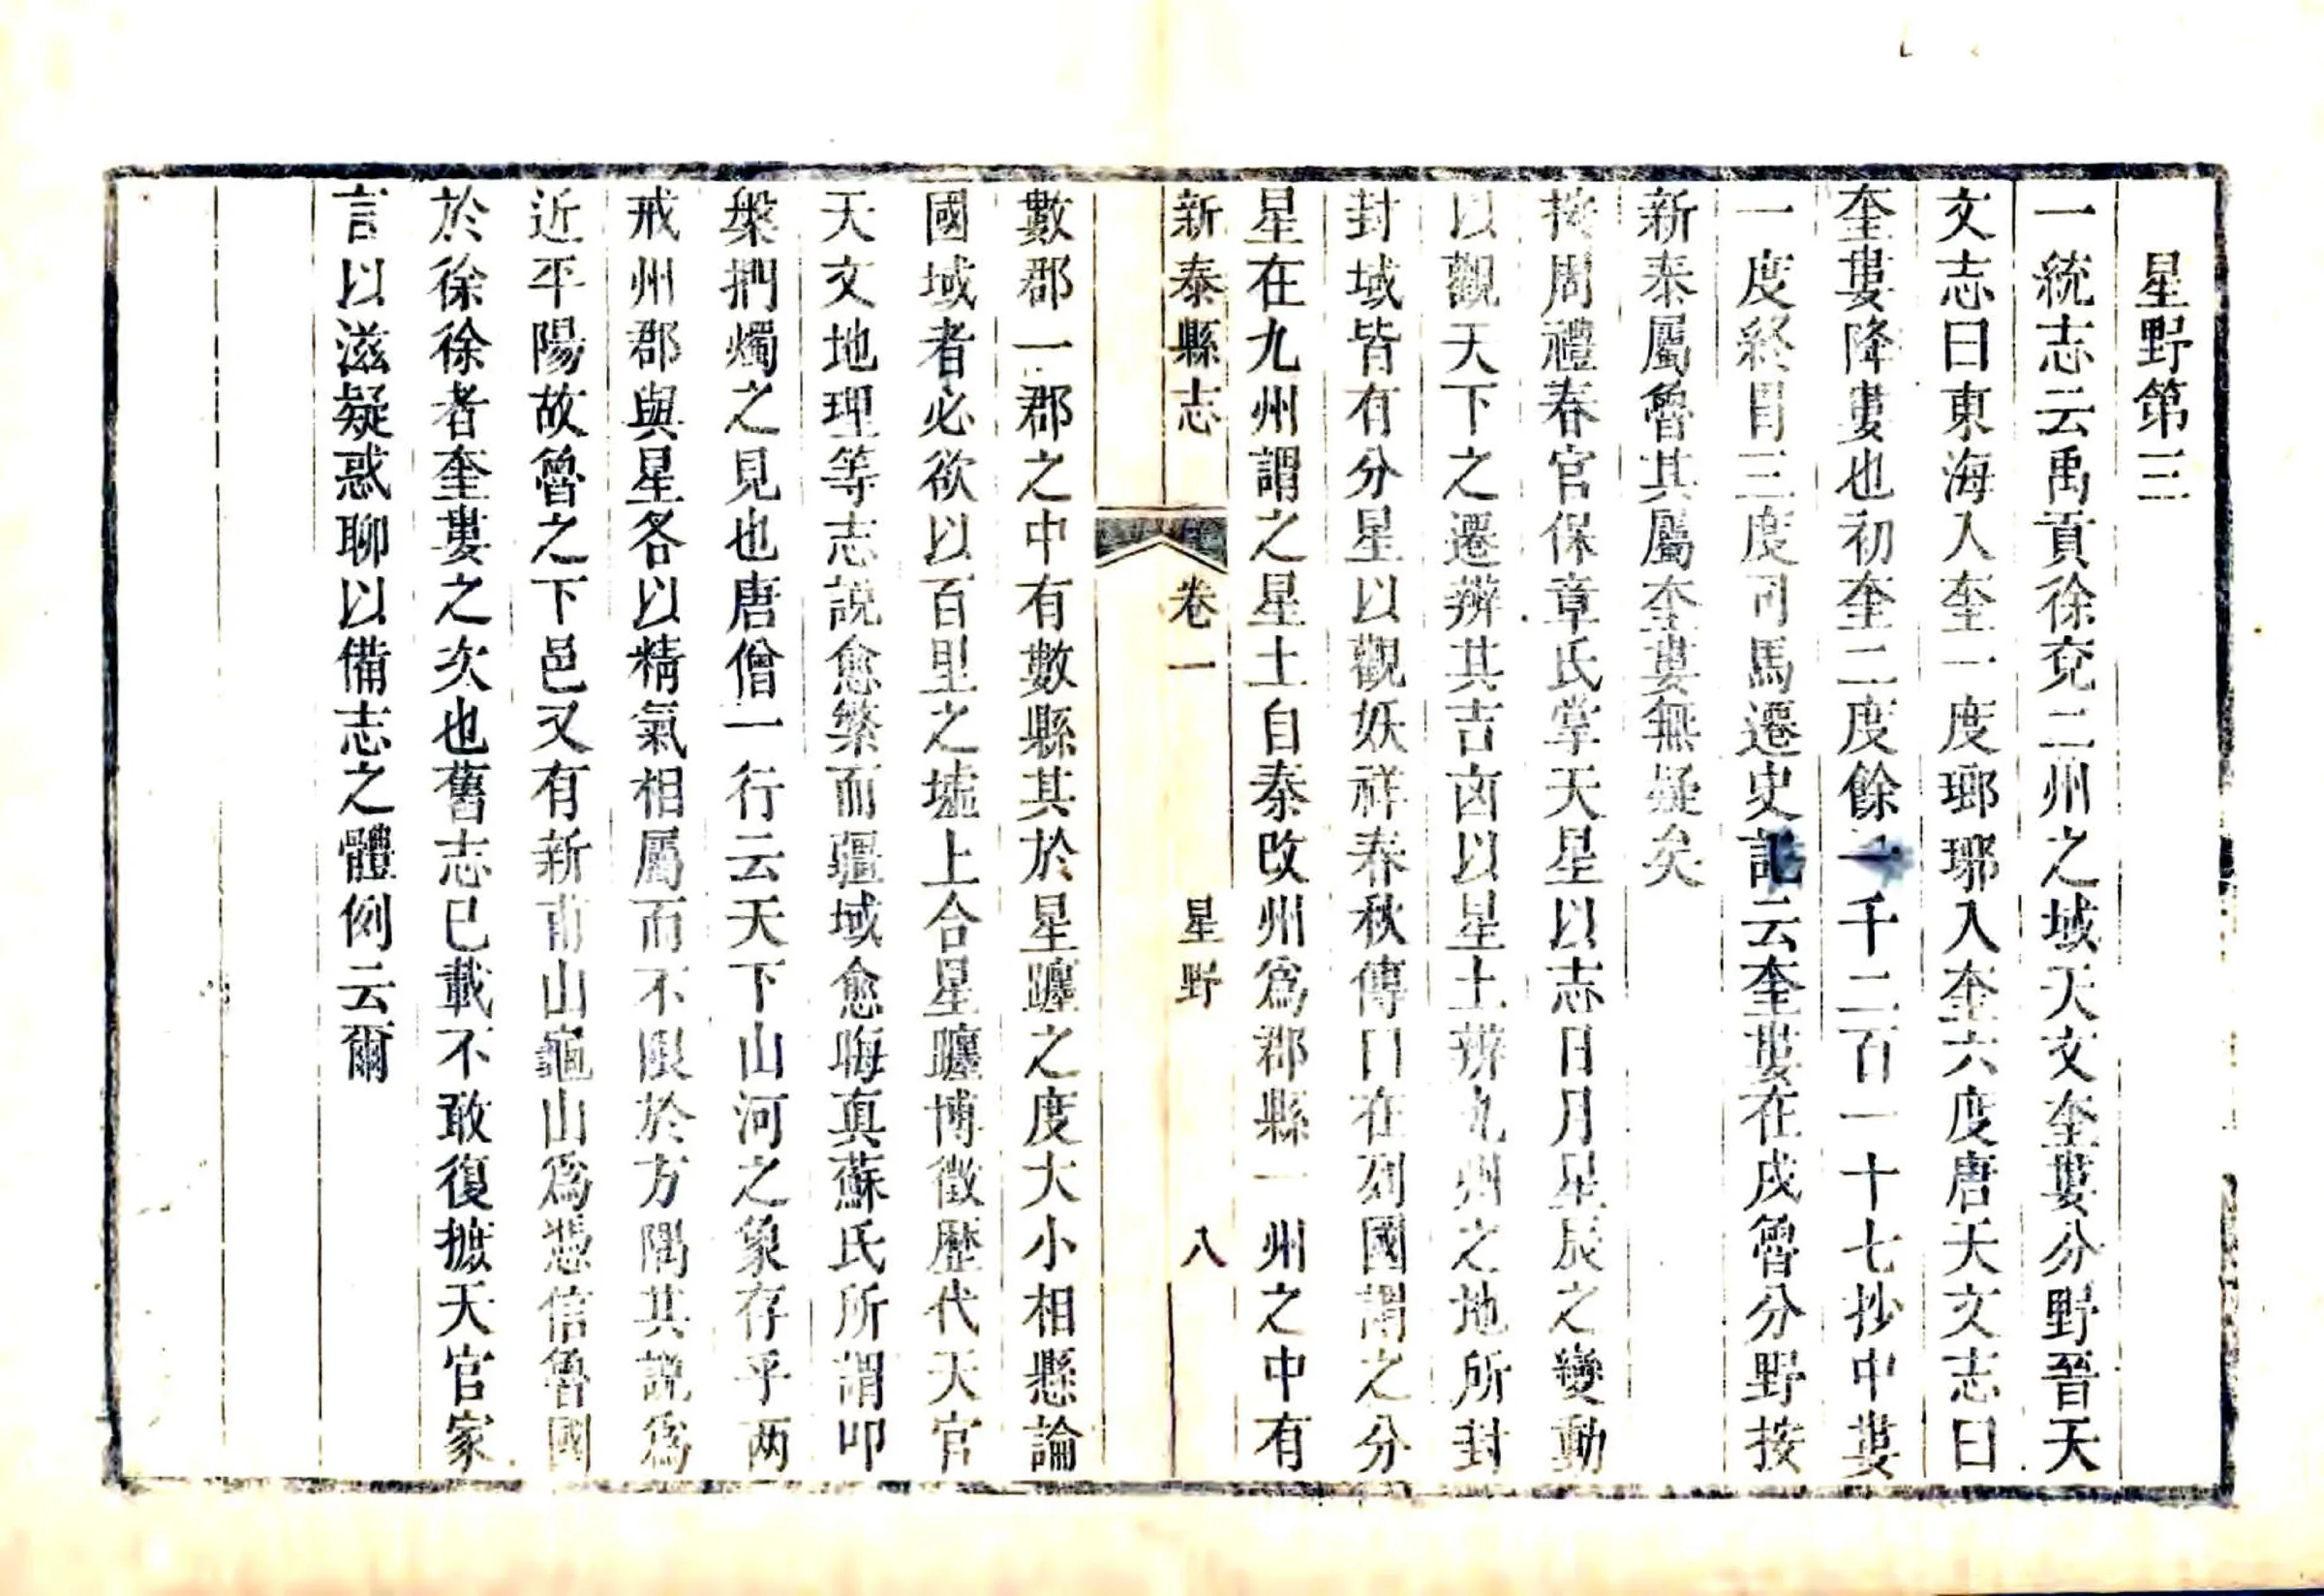 星野第三
一統志云禹貢徐兗二州之域天文奎婁分野晉天
文志曰東海入奎一度瑯琊入奎六度唐天文志曰
奎婁降婁也初奎二度餘一千二百一十七抄中婁
一度終胃三度司馬遷史記云奎婁在戌魯分野按
新泰屬魯其屬奎婁無疑矣
按周禮春官保章氏掌天星以志日月星辰之變動
以觀天下之遷辨其吉凶以星土辨九州之地所封
封域皆有分星以觀妖祥春秋傳曰在列國謂之分
星在九州謂之星土自秦改州爲郡縣一州之中有
新泰縣志 卷一 星野 八
數郡一郡之中有數縣其於星躔之度大小相懸論
國域者必欲以百里之墟上合星躔博徵歷代天官
天文地理等志說愈繁而疆域愈晦真蘇氏所謂叩
槃捫燭之見也唐僧一行云天下山河之象存乎两
戒州郡與星各以精氣相屬而不限於方隅其說爲
近平陽故魯之下邑又有新甫山龜山爲憑信魯國
於徐徐者奎婁之次也舊志已載不敢復摭天官家
言以滋疑惑聊以備志之體例云爾